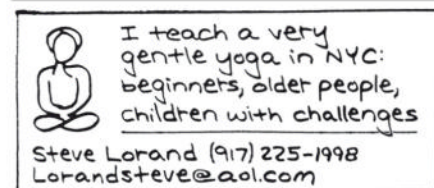 I teach a very
gentle yoga in NYC:
beginners, older people,
children with challenges
Steve Lorand (917) 225-1998
Lorandsteve@aol.com